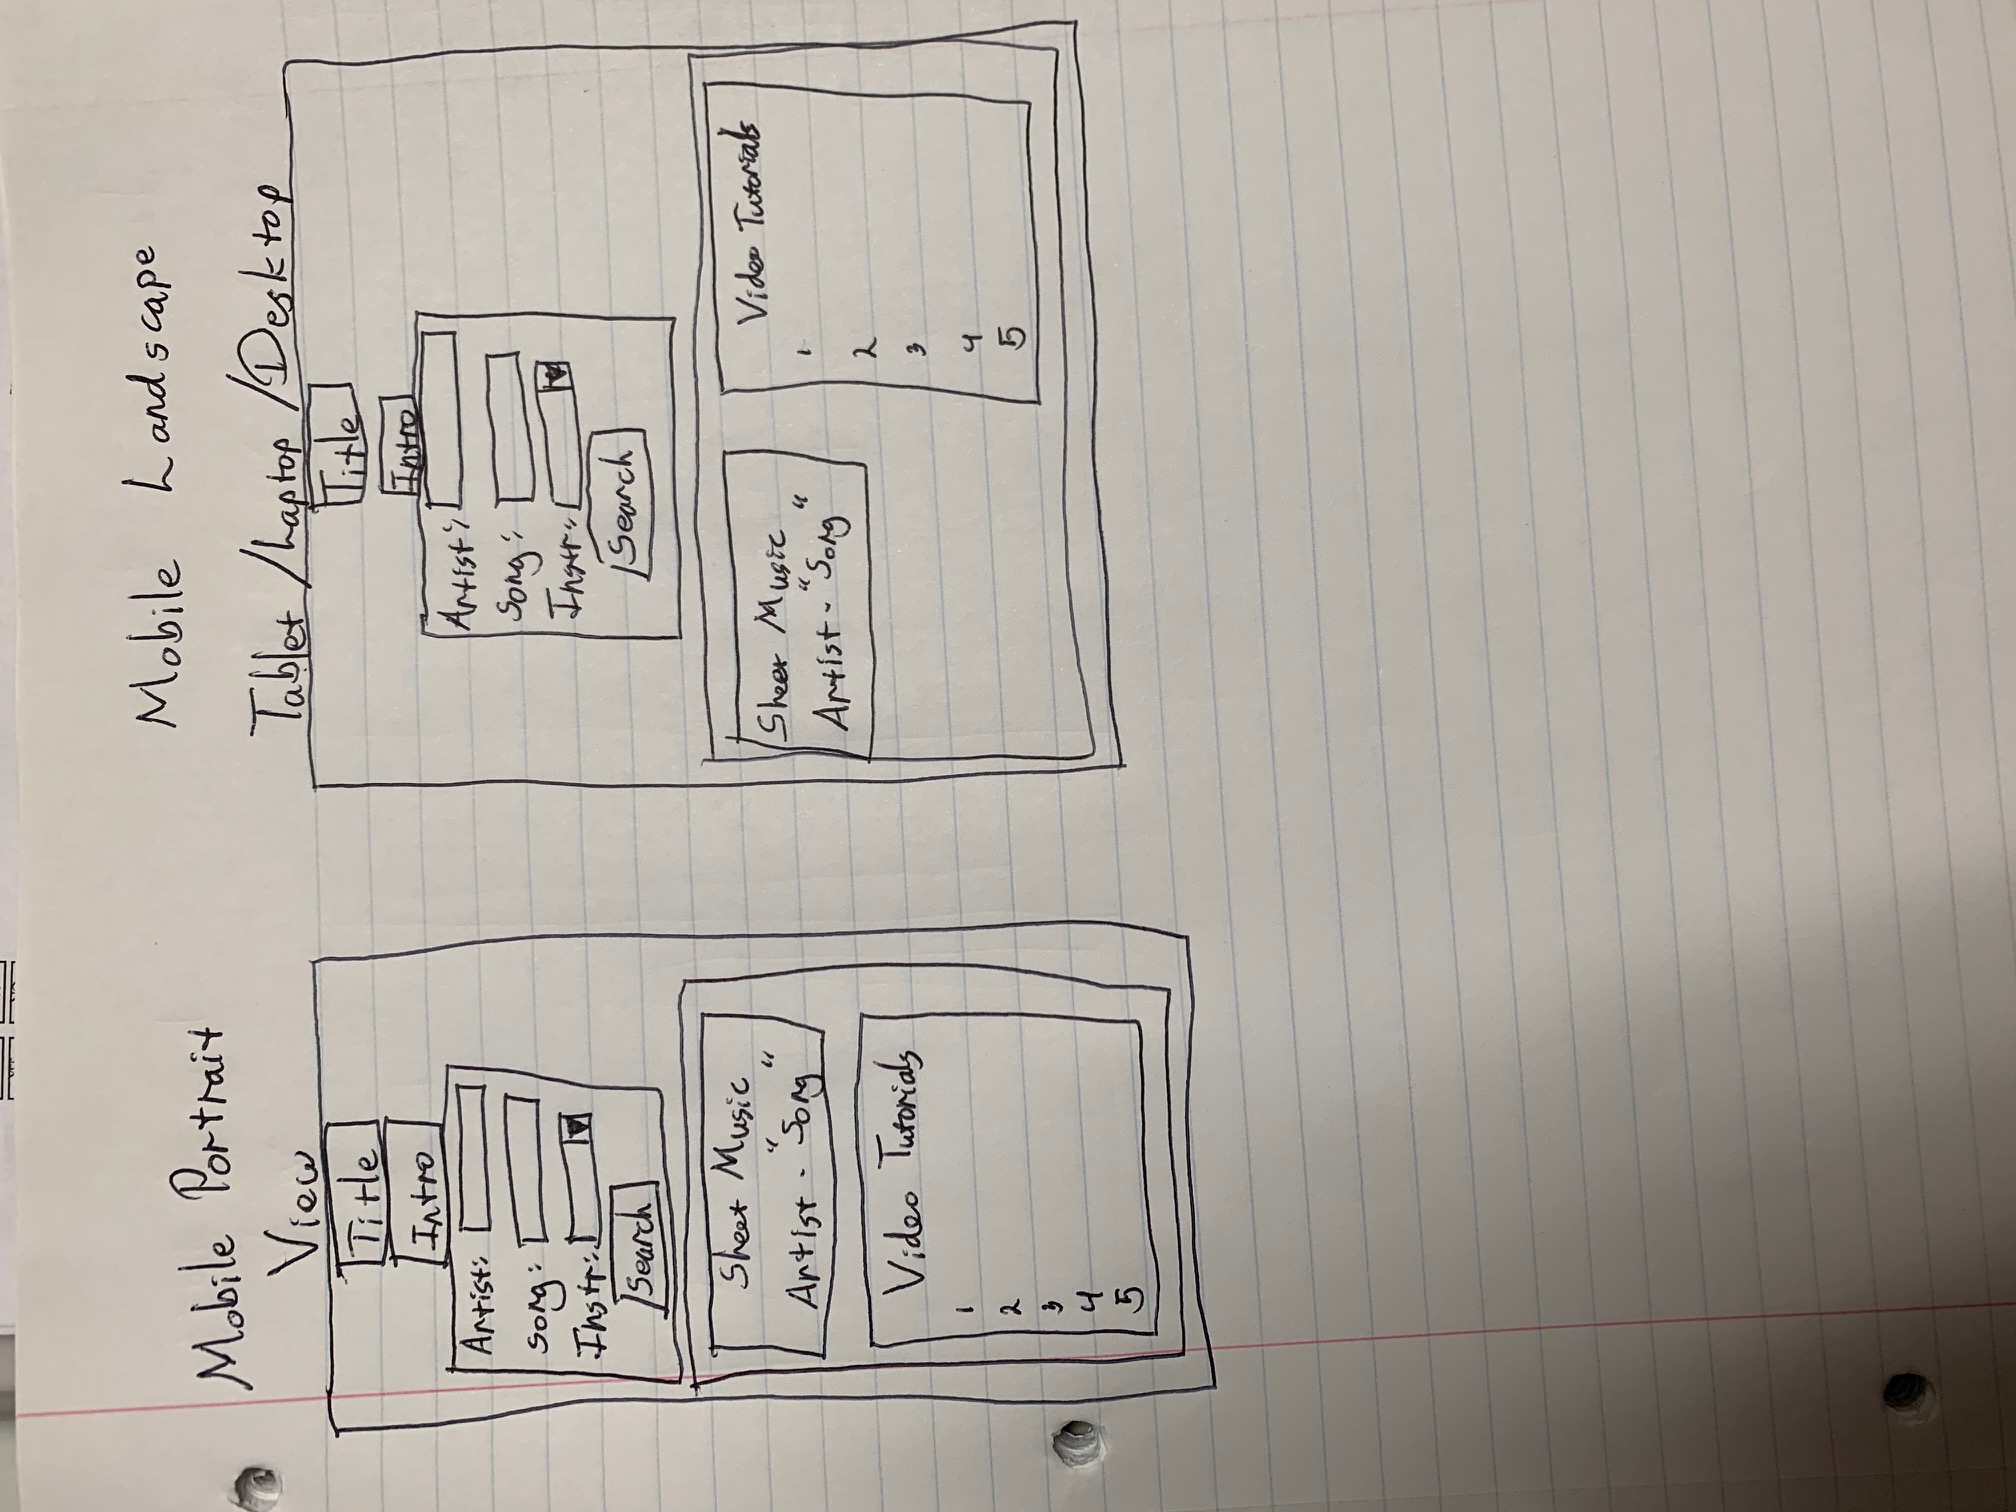 Mobile Portrait
View
Title
Intro
Artist:
Song:
Instr:
Search
Sheet Music
Artist - "Song"
Video Tutorials
1
2
3
4
5
Mobile Landscape
Tablet / Laptop / Desktop
Title
Intro
Artist:
Song:
Instr:
Search
Sheet Music
Artist - "Song"
Video Tutorials
1
2
3
4
5